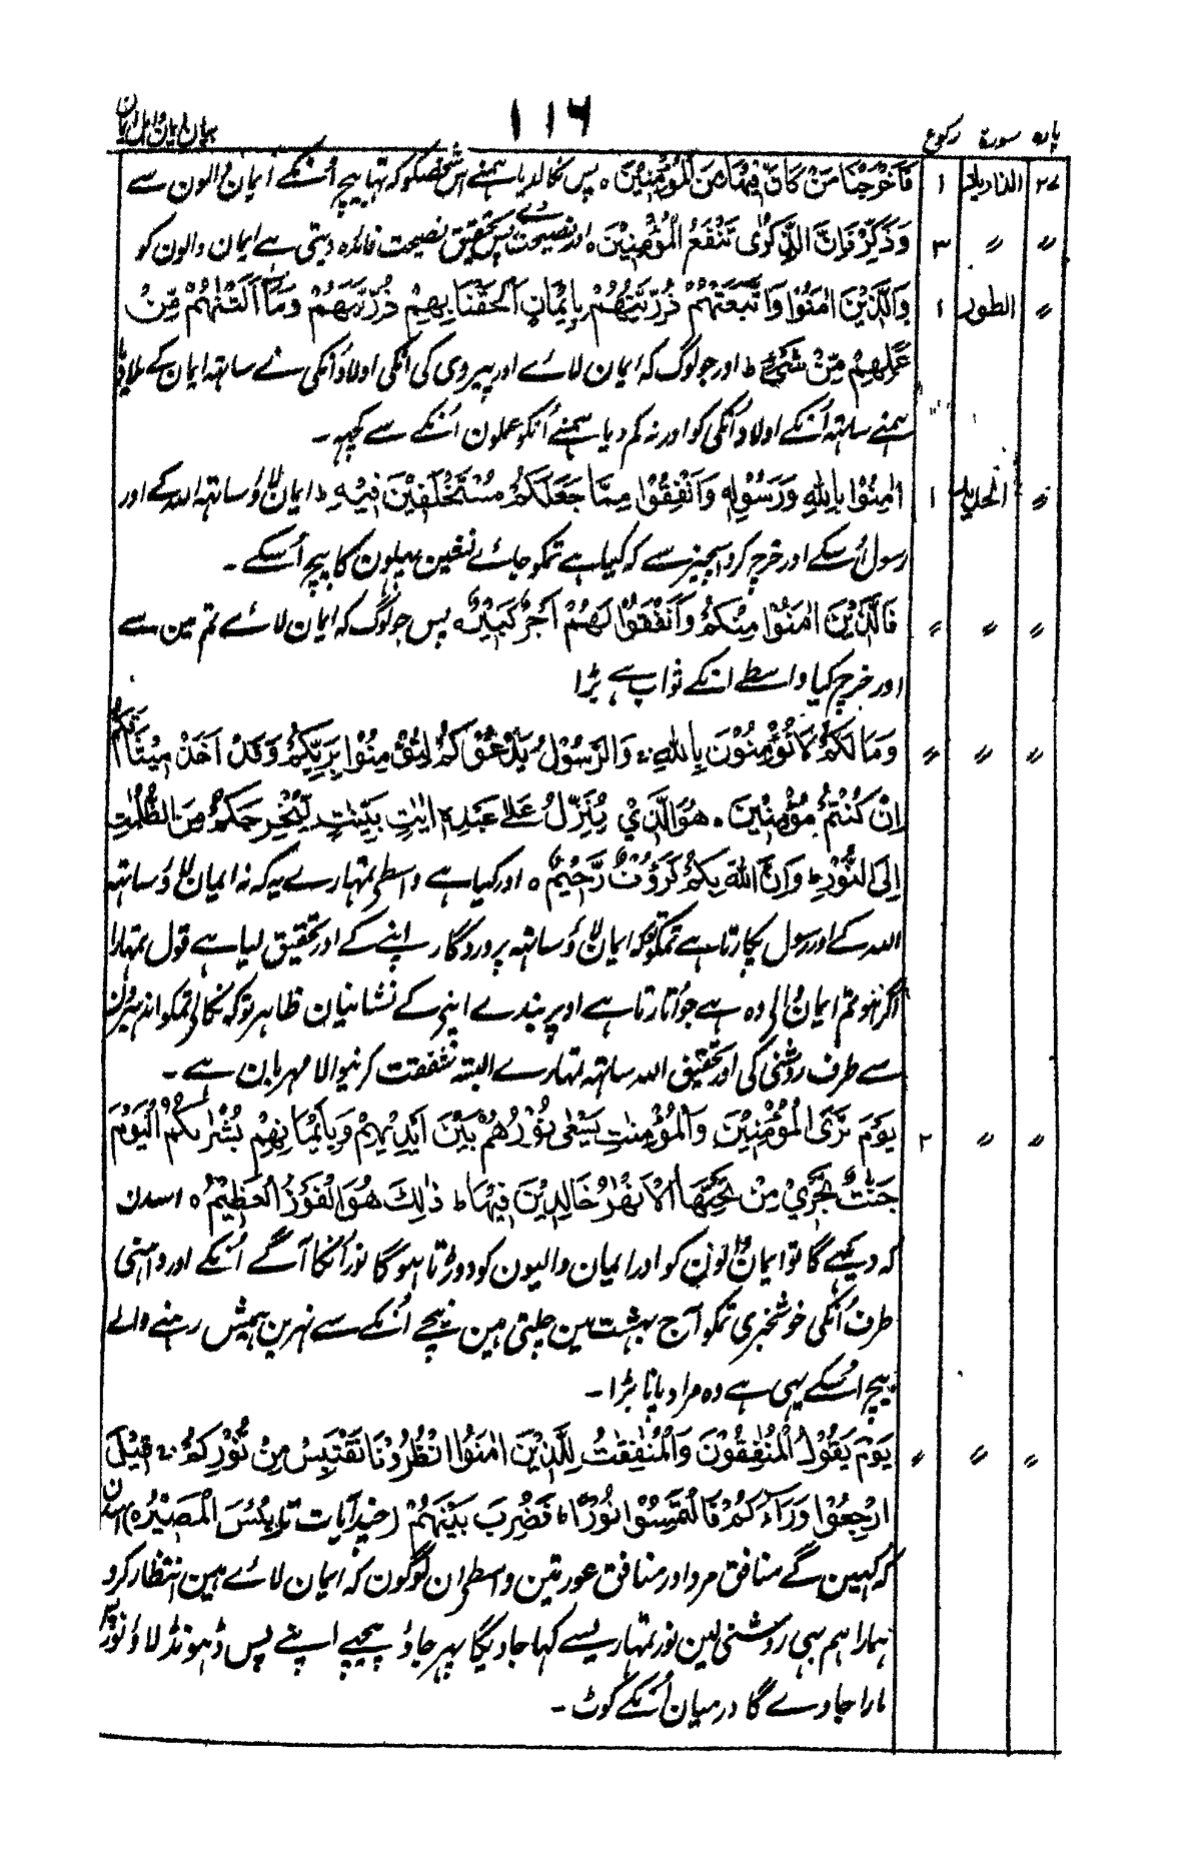 پارہ سورۃ رکوع ۱۱۶ بیان ایمان و اہل ایمان
۲۷ الذاریات ۱ فَاَخْرَجْنَا مَنْ كَانَ فِيْهَا مِنَ الْمُؤْمِنِيْنَ ہ پس نکالدیا ہمنے اس شخصکو کہ تہا بیچ اُنکے ایمان والون سے
〃 〃 ۳ وَذَكِّرْ فَاِنَّ الذِّكْرٰى تَنْفَعُ الْمُؤْمِنِيْنَ ہ اور نصیحت دے پس تحقیق نصیحت فائدہ دیتی ہے ایمان والون کو
〃 الطور ۱ وَالَّذِيْنَ اٰمَنُوْا وَاتَّبَعَتْهُمْ ذُرِّيَّتُهُمْ بِاِيْمَانٍ اَلْحَقْنَا بِهِمْ ذُرِّيَّتَهُمْ وَمَا اَلَتْنٰهُمْ مِّنْ
عَمَلِهِمْ مِّنْ شَيْءٍ ط اور جو لوگ کہ ایمان لائے اور پیروی کی انکی اولاد اُنکی نے ساتہہ ایمان کے ملادیا
ہمنے ساتہہ اُنکے اولاد اُنکی کو اور نہ کم دیا ہمنے اُنکو عملون اُنکے سے کچہہ ۔
〃 الحدید ۱ اٰمِنُوْا بِاللّٰهِ وَرَسُوْلِهٖ وَاَنْفِقُوْا مِمَّا جَعَلَكُمْ مُّسْتَخْلَفِيْنَ فِيْهِ ط ایمان لاؤ ساتہہ اللہ کے اور
رسول اُسکے اور خرچ کرو اسچیز سے کہ کیا ہے تمکو جائے نشین پہلون کا بیچ اُسکے ۔
〃 〃 〃 فَالَّذِيْنَ اٰمَنُوْا مِنْكُمْ وَاَنْفَقُوْا لَهُمْ اَجْرٌ كَبِيْرٌ ہ پس جو لوگ کہ ایمان لائے تم مین سے
اور خرچ کیا واسطے انکے ثواب ہے بڑا
〃 〃 〃 وَمَا لَكُمْ لَا تُؤْمِنُوْنَ بِاللّٰهِ ۚ وَالرَّسُوْلُ يَدْعُوْكُمْ لِتُؤْمِنُوْا بِرَبِّكُمْ وَقَدْ اَخَذَ مِيْثَاقَكُمْ
اِنْ كُنْتُمْ مُّؤْمِنِيْنَ ہ هُوَ الَّذِيْ يُنَزِّلُ عَلٰى عَبْدِهٖ اٰيٰتٍ بَيِّنٰتٍ لِّيُخْرِجَكُمْ مِّنَ الظُّلُمٰتِ
اِلَى النُّوْرِ ط وَاِنَّ اللّٰهَ بِكُمْ لَرَءُوْفٌ رَّحِيْمٌ ہ اور کیا ہے واسطے تمہارے یہ کہ نہ ایمان لاؤ ساتہہ
اللہ کے اور رسول پکارتا ہے تمکو توکہ ایمان لاؤ ساتہہ پروردگار اپنے کے اور تحقیق لیا ہے قول تمہارا
اگر ہو تم ایمان والی وہ ہے جو اُتارتا ہے اوپر بندے اپنے کے نشانیان ظاہر توکہ نکالے تمکو اندہیرون
سے طرف روشنی کی اور تحقیق اللہ ساتہہ تمہارے البتہ شفقت کرنیوالا مہربان ہے ۔
〃 〃 ۲ يَوْمَ تَرَى الْمُؤْمِنِيْنَ وَالْمُؤْمِنٰتِ يَسْعٰى نُوْرُهُمْ بَيْنَ اَيْدِيْهِمْ وَبِاَيْمَانِهِمْ بُشْرٰىكُمُ الْيَوْمَ
جَنّٰتٌ تَجْرِيْ مِنْ تَحْتِهَا الْاَنْهٰرُ خَالِدِيْنَ فِيْهَا ط ذٰلِكَ هُوَ الْفَوْزُ الْعَظِيْمُ ہ اسدن
کہ دیکہے گا تو ایمان والون کو اور ایمان والیون کو دوڑتا ہوگا نور اُنکا آگے اُنکے اور داہنی
طرف اُنکی خوشخبری تمکو آج بہشت ہین چلتی ہین نیچے اُنکے سے نہرین ہمیش رہنے والے
بیچ اُسکے یہی ہے وہ مراد پانا بڑا ۔
〃 〃 〃 يَوْمَ يَقُوْلُ الْمُنٰفِقُوْنَ وَالْمُنٰفِقٰتُ لِلَّذِيْنَ اٰمَنُوا انْظُرُوْنَا نَقْتَبِسْ مِنْ نُّوْرِكُمْ ۚ قِيْلَ
ارْجِعُوْا وَرَآءَكُمْ فَالْتَمِسُوْا نُوْرًا ط فَضُرِبَ بَيْنَهُمْ (چند آیات تا بِئْسَ الْمَصِيْرُ ہ) اسدن
کہ کہین گے منافق مرد اور منافق عورتین واسطے ان لوگون کہ ایمان لائے ہین انتظار کرو
ہمارا ہم بہی روشنی لین نور تمہاریسے کہا جاویگا پہر جاؤ پیچہے اپنے پس ڈہونڈ لاؤ نور پس
مارا جاوے گا درمیان اُنکے کوٹ ۔